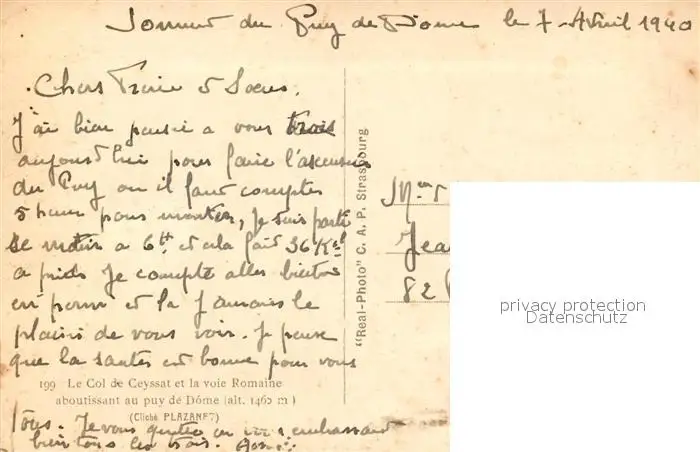 Sommet du Puy de Dome le 7 Avril 1940
Chers Frere et Soeur.
J'ai bien pensé a vous trois
aujourd'hui pour faire l'ascension
du Puy ou il faut compter
5 heures pour monter, je suis parti
le matin a 6h et cela fait 36 Km
a pieds je compte aller bientot
en perm et la j'aurais le
plaisir de vous voir. Je pense
que la santée est bonne pour vous
tous. Je vous quitte en vous embrassant
bien tous les trois.
199 Le Col de Ceyssat et la voie Romaine
aboutissant au puy de Dôme (alt. 1465 m)
(Cliché PLAZANET)
"Real-Photo" C. A. P. Strasbourg
Jea
82
privacy protection
Datenschutz